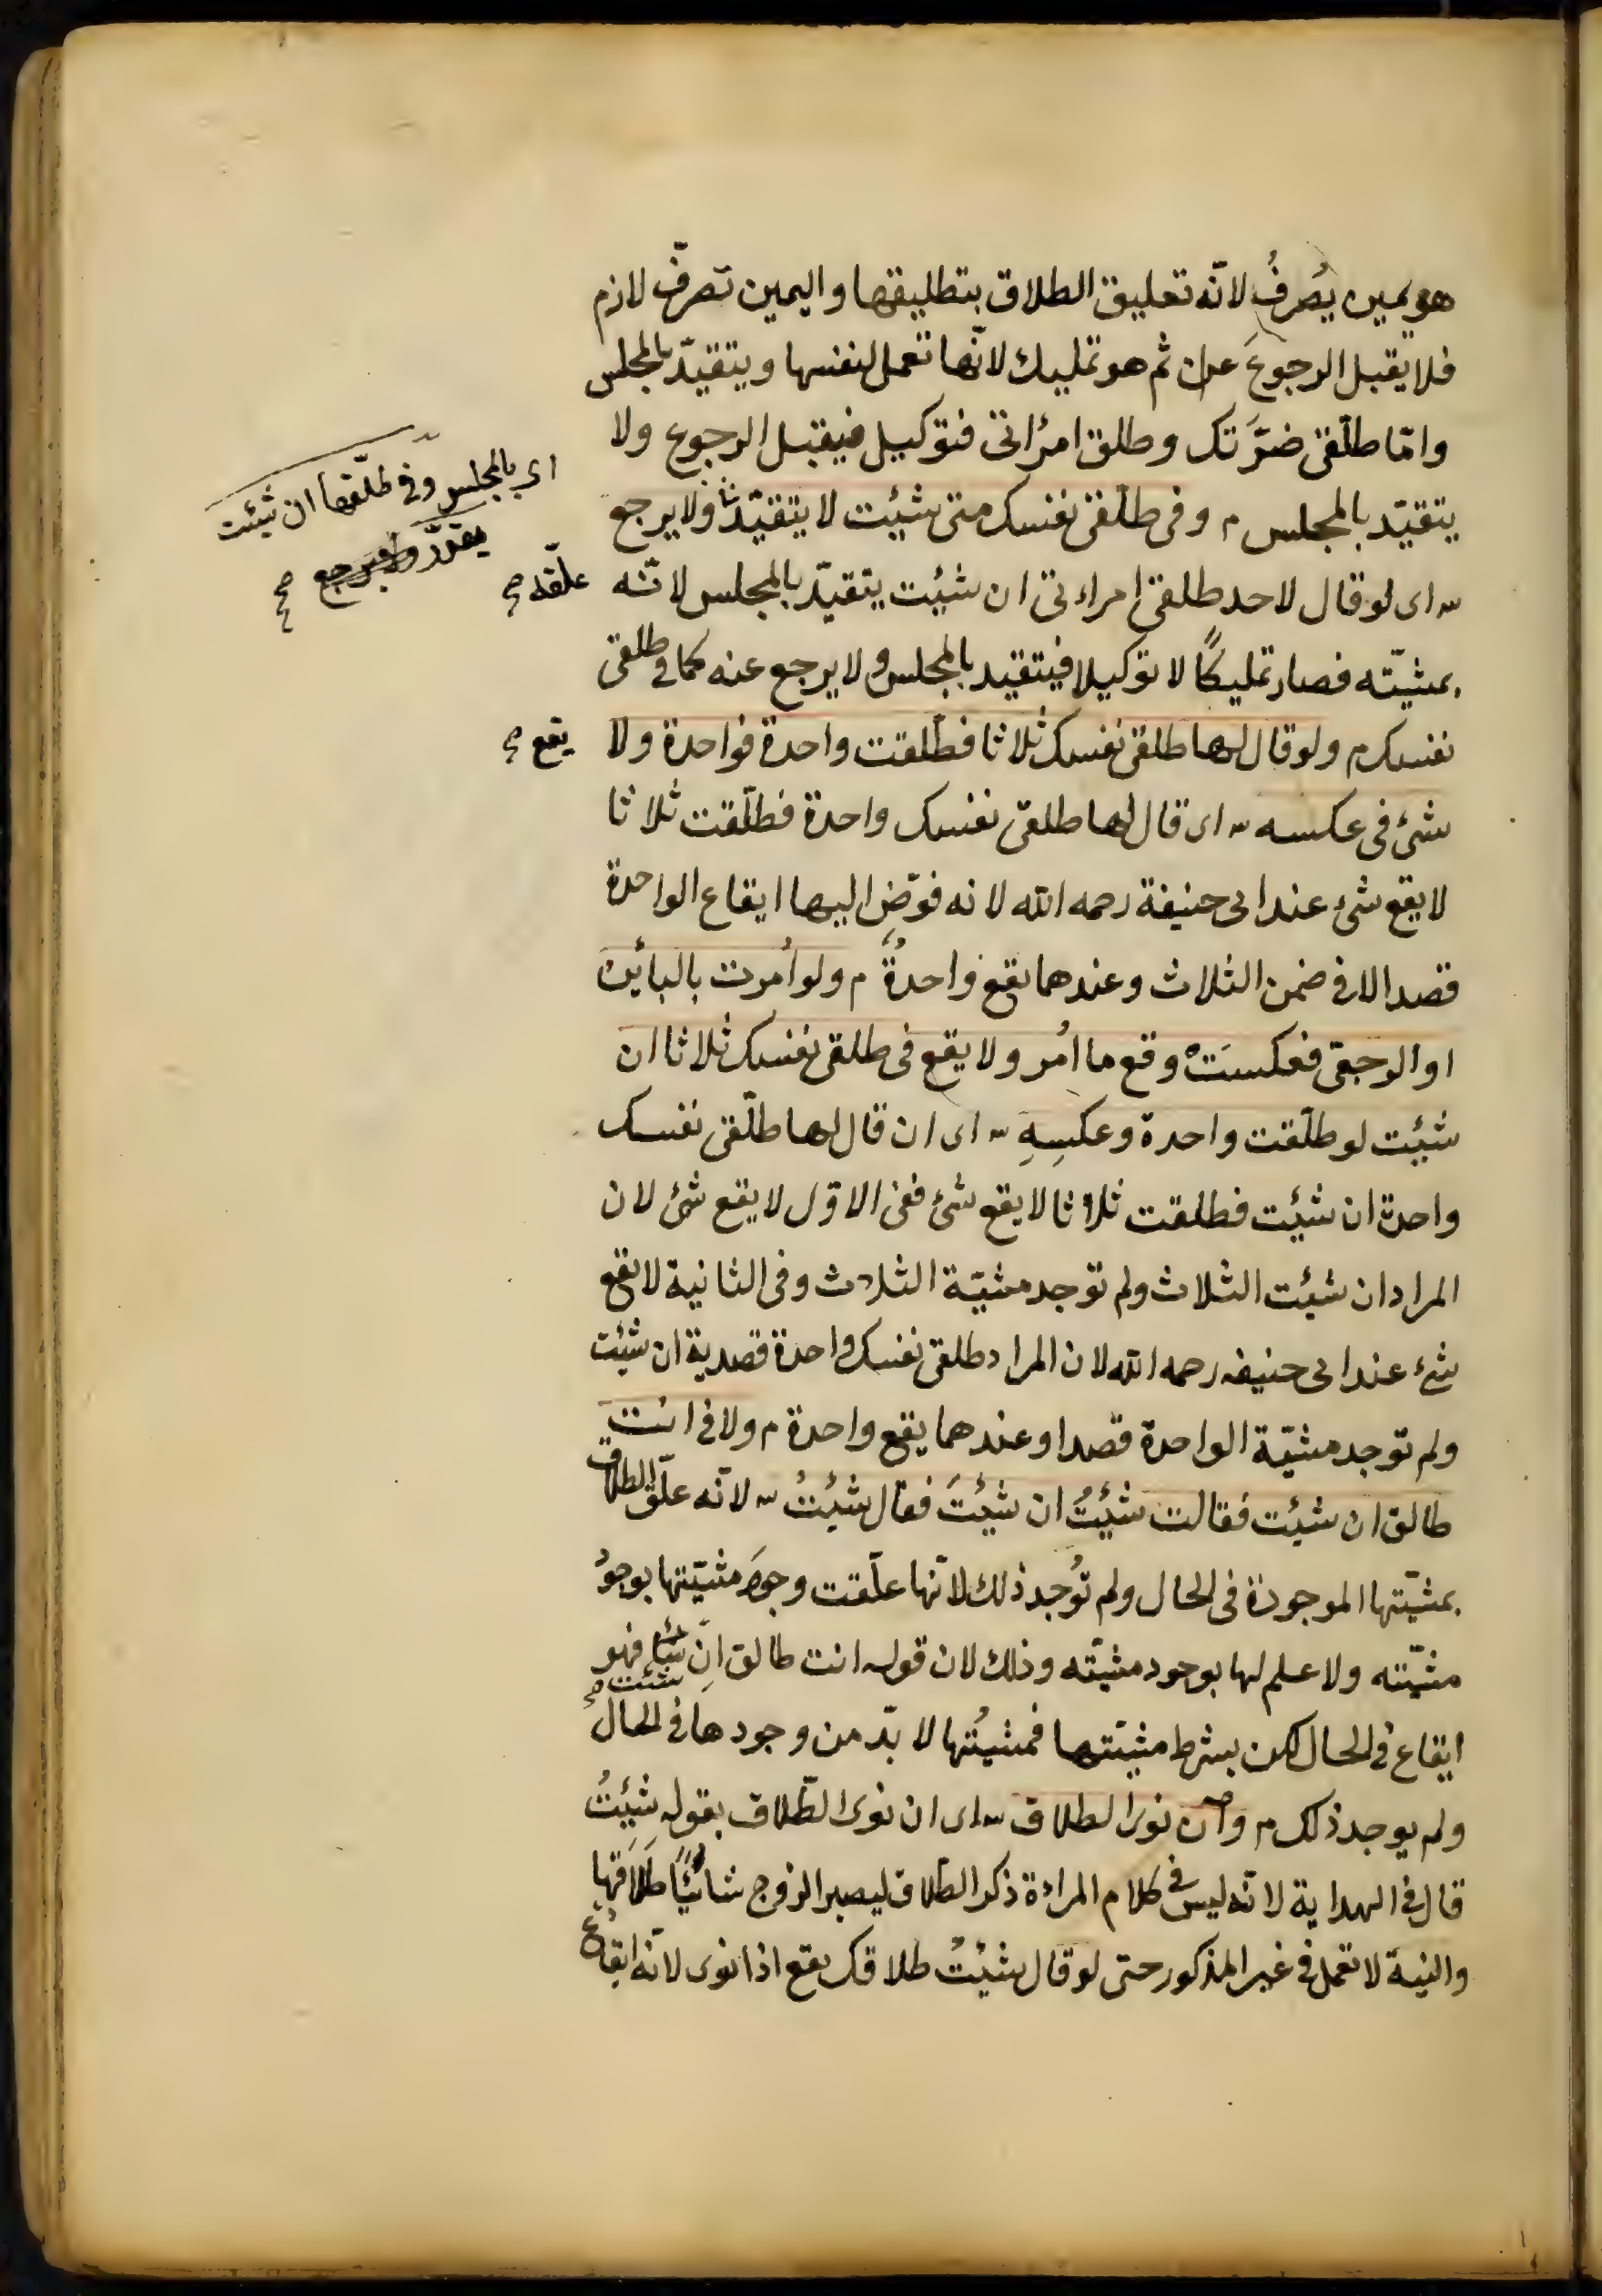 هو يمين يُصرفُ لانّه تعليق الطلاق بتطليقها واليمين تصرفّ لازم
فلا يقبل الرجوعَ عن ثم هو تمليك لانّها تعمل لنفسها ويتقيدّ بالمجلس
وامّا طلّقى ضرَّتك وطلق امرٔاتى فتوكيل فيقبل الرجوع ولا
يتقيّد بالمجلس م وفى طلّقى نفسك متى شئت لا يتقيّد ولا يرجع
اى بالمجلس وفى طلّقها ان شئت
يرجع صح
علّقه صح
ـہ اى لو قال لاحد طلقى امراءتى ان شئت يتقيدّ بالمجلس لانّه
بمشيّته فصار تمليكًا لا توكيلا فيتقيد بالمجلس ولا يرجع عنه كما فى طلقى
نفسك م ولو قال لها طلقى نفسك ثلاثا فطلّقت واحدة فواحدة ولا
يقع صح
شئ فى عكسه ـہ اى قال لها طلقى نفسك واحدة فطلّقت ثلاثا
لا يقع شئ عند ابى حنيفة رحمه الله لانه فوّض اليها ايقاع الواحدة
قصدا لا فى ضمن الثلاث وعندهما يقع واحدةٌ م ولو أُمرت بالبائن
او الرجعىّ فعكست وقع ما اُمر ولا يقع فى طلقى نفسك ثلاثا ان
شئت لو طلّقت واحدة وعكسِهِ ـہ اى ان قال لها طلّقى نفسك
واحدة ان شئت فطلقت ثلاثا لا يقع شئ ففى الاوّل لا يقع شئ لان
المراد ان شئت الثلاث ولم توجد مشيّة الثلاث وفى الثانية لا يقع
شئ عند ابى حنيفه رحمه الله لان المراد طلقى نفسك واحدة قصدية ان شئت
ولم توجد مشيّة الواحدة قصدا وعندهما يقع واحدة م ولا فى انت
طالق ان شئت فقالت شئتُ ان شئتَ فقال شئتُ ـہ لانّه علّق الطلاق
بمشيّتها الموجودة فى الحال ولم تُوجد ذلك لانّها علّقت وجود مشيّتها بوجود
مشيّته ولا علم لها بوجود مشيّته وذلك لان قوله انت طالق انِ شاء فهو
شئت صح
ايقاع فى الحال لكن بشرط مشيّتها فمشيّتها لا بدّ من وجودها فى الحال
ولم يوجد ذلك م وان نوى الطلاق ـہ اى ان نوى الطّلاق بقوله شئتُ
قال فى الهداية لانّه ليس فى كلام المراءة ذكر الطّلاق ليصير الزوج شائيًا طلاقها
والنية لا تعمل فى غير المذكور حتى لو قال شئتُ طلاقك يقع اذا نوى لانّه ايقاع